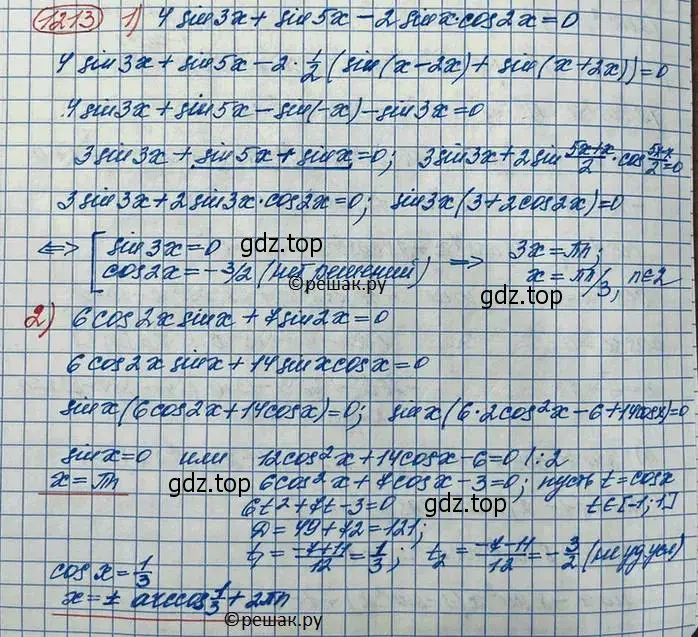 1213 1) 4 sin3x + sin5x − 2 sinx·cos2x = 0
4 sin3x + sin5x − 2·1/2(sin(x−2x) + sin(x+2x)) = 0
4 sin3x + sin5x − sin(−x) − sin3x = 0
3 sin3x + sin5x + sinx = 0; 3 sin3x + 2 sin (5x+x)/2 · cos (5x−x)/2 = 0
3 sin3x + 2 sin3x·cos2x = 0; sin3x(3 + 2cos2x) = 0
⟺ [ sin3x = 0 ⟹ 3x = πn;
gdz.top
cos2x = −3/2 (нет решений) x = πn/3, n∈Z
©решак.ру gdz.top
2) 6cos2x sinx + 7sin2x = 0
6cos2x sinx + 14 sinx cosx = 0
sinx(6cos2x + 14cosx) = 0; sinx(6·2cos²x − 6 + 14cosx) = 0
sinx = 0 или 12cos²x + 14cosx − 6 = 0 |:2
x = πn 6cos²x + 7cosx − 3 = 0; пусть t = cosx
gdz.top gdz.top
6t² + 7t − 3 = 0 t∈[−1; 1]
D = 49 + 72 = 121;
t₁ = (−7+11)/12 = 1/3; t₂ = (−7−11)/12 = −3/2 (не уд. усл)
cosx = 1/3
x = ± arccos 1/3 + 2πn
©решак.ру gdz.top